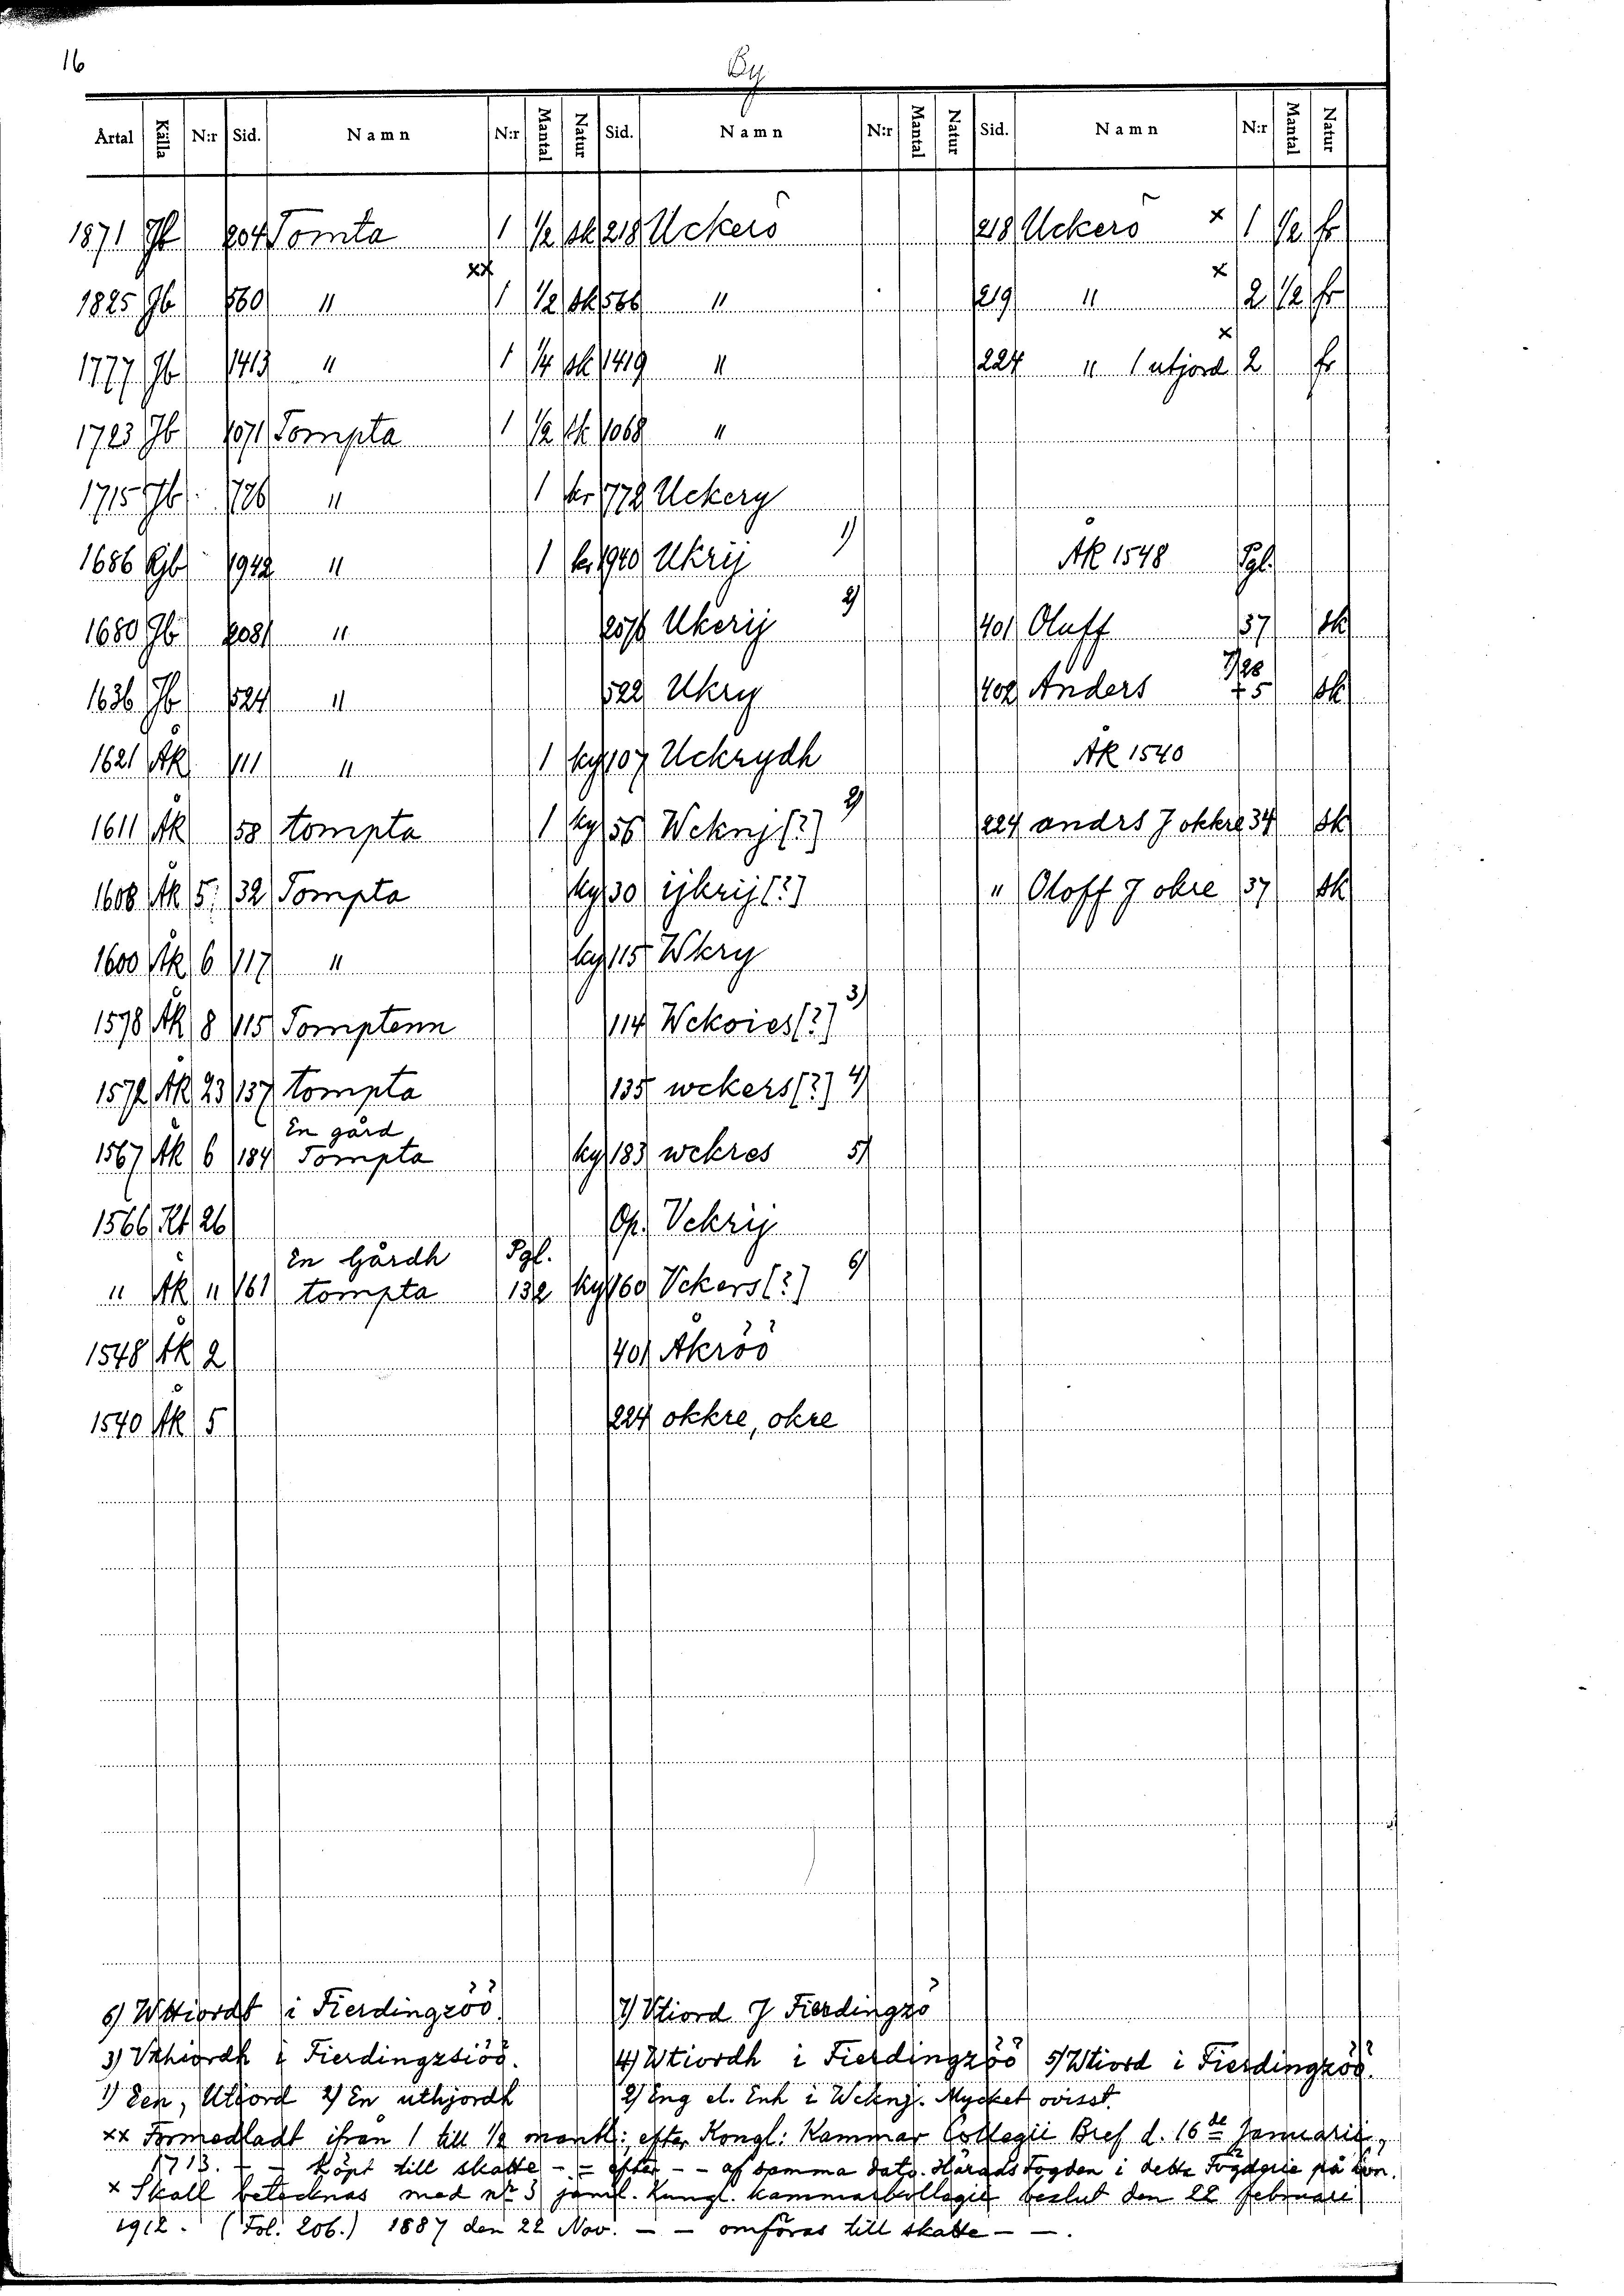 16
By
Artal Källa N:r Sid. Namn N:r Mantal Natur Sid. Namn N:r Mantal Natur Sid. Namn N:r Mantal Natur
1871 Jb 204 Tomta 1 1/2 sk 218 Uckerö 218 Uckerö x 1 1/2 fr
1825 Jb 560 " xx 1 1/2 sk 566 " 219 " x 2 1/2 fr
1777 Jb 1413 " 1 1/4 sk 1419 " 224 " 1 utjord x 2 fr
1723 Jb 1071 Tompta 1 1/2 sk 1068 "
1715 Jb 726 " 1 kr 772 Uckery
1686 Rjb 1942 " 1 kr 1940 Ukrij 1) ÅK 1548 Pgl.
1680 Jb 2081 " 2076 Ukerij 2) 401 Oluff 37 sk
1636 Jb 524 " 522 Ukry 402 Anders 75 sk
1621 ÄK 111 " 1 ky 107 Uckrydh ÅK 1540
1611 ÄK 58 tompta 1 ky 56 Weknj (?) 2) 224 andrs J okkre 34 sk
1608 ÄK 5 32 Tompta ky 30 ijkrij (?) " Oloff J okre 37 sk
1600 ÄK 6 117 " ky 115 Wkry
1578 ÄK 8 115 Tomptenn 114 Wckoies (?) 3)
1572 ÄK 23 137 tompta 135 wckers (?) 4)
En gård
1567 ÄK 6 184 Tompta ky 183 wckres 5)
1566 26 Op. Vckrij
En Gårdh Pgl.
" ÄK " 161 tompta 132 ky 160 Vckers (?) 6)
1548 ÅK 2 401 Åkröö
1540 ÅK 5 224 okkre, okre
6) Wttiordt i Fierdingzöö 7) Vtiord J Fierdingzö
3) Vthiordh i Fierdingzsiöö. 4) Wtiordh i Fierdingzöö 5) Wtiord i Fierdingzöö.
1) Een, Utiord 2) En uthjordh 2) Eng el. Enh i Weknj. Mycket ovisst.
xx Förmedladt ifrån 1 till 1/2 mantl: efter Kongl: Kammar Collegii Bref d. 16de Januarii,
1713. - - köpt till skatte - - efter - - af samma dato. Härads Fogden i detta Fögderie på Lön.
x Skall betecknas med nr 3 jämil. Kungl. Kammarkollegii beslut den 22 februari
1912. (Fol. 206.) 1887 den 22 Nov. - - omföras till skatte - - .